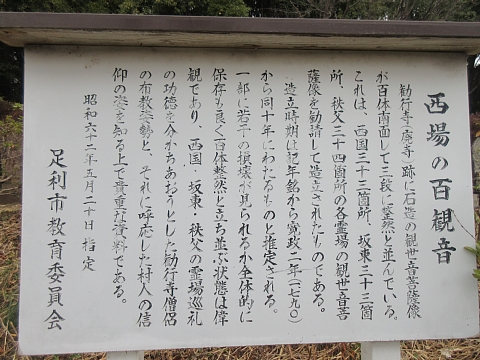 西場の百観音
勧行寺(廃寺)跡に石造の観世音菩薩像
が百体南面して三段に整然と並んでいる。
これは、西国三十三箇所、坂東三十三箇
所、秩父三十四箇所の各霊場の観世音菩
薩像を勧請して造立されたものである。
造立時期は記年銘から寛政二年(一七九〇)
から同十年にわたるものと推定される。
一部に若干の損壊が見られるが全体的に
保存も良く百体整然と立ち並ぶ状態は偉
観であり、西国、坂東・秩父の霊場巡礼
の功徳を分かちあおうとした勧行寺僧侶
の布教姿勢と、それに呼応した村人の信
仰の姿を知る上で貴重な資料である。
昭和六十二年五月二十日 指定
足利市教育委員会